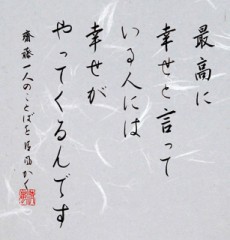 最高に
幸せと言って
いる人には
幸せが
やってくるんです
齋藤一人のことばを
かく